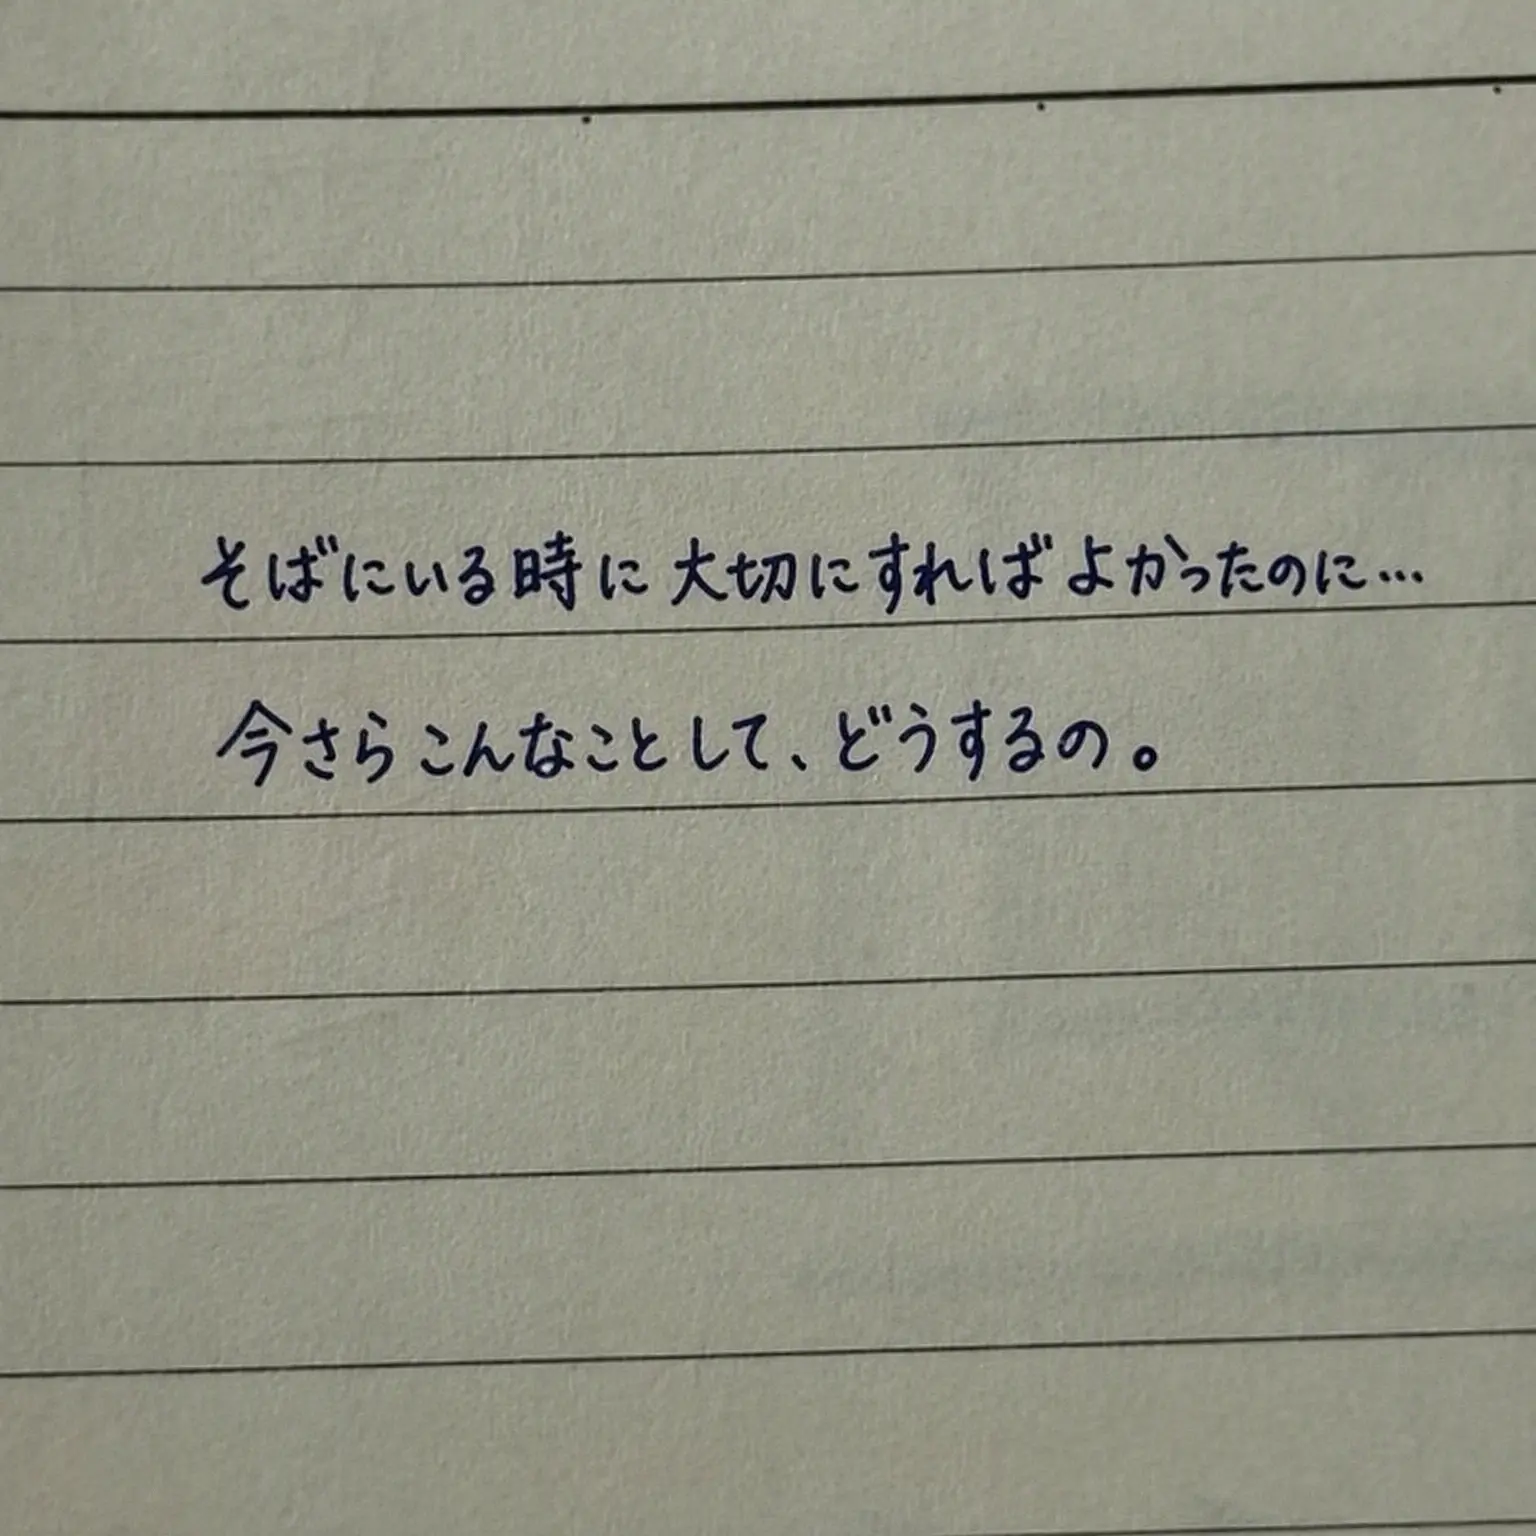 そばにいる時に大切にすればよかったのに…
今さらこんなことして、どうするの。